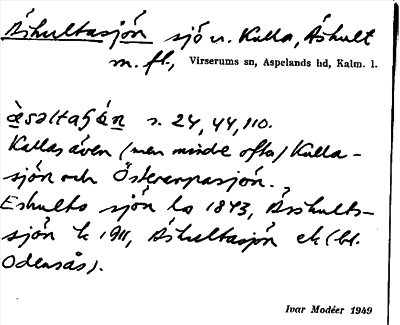 Åshultasjön sjö u. Kulla, Åshult
m. fl., Virserums sn, Aspelands hd, Kalm. l.
s. 24, 44, 110.
Kallas även (men mindre ofta) Kulla-
sjön och Österarpasjön.
Eshults sjön la 1843, Åshults-
sjön k 1911, Åshultasjön ek (bl.
Odensås).
Ivar Modéer 1949